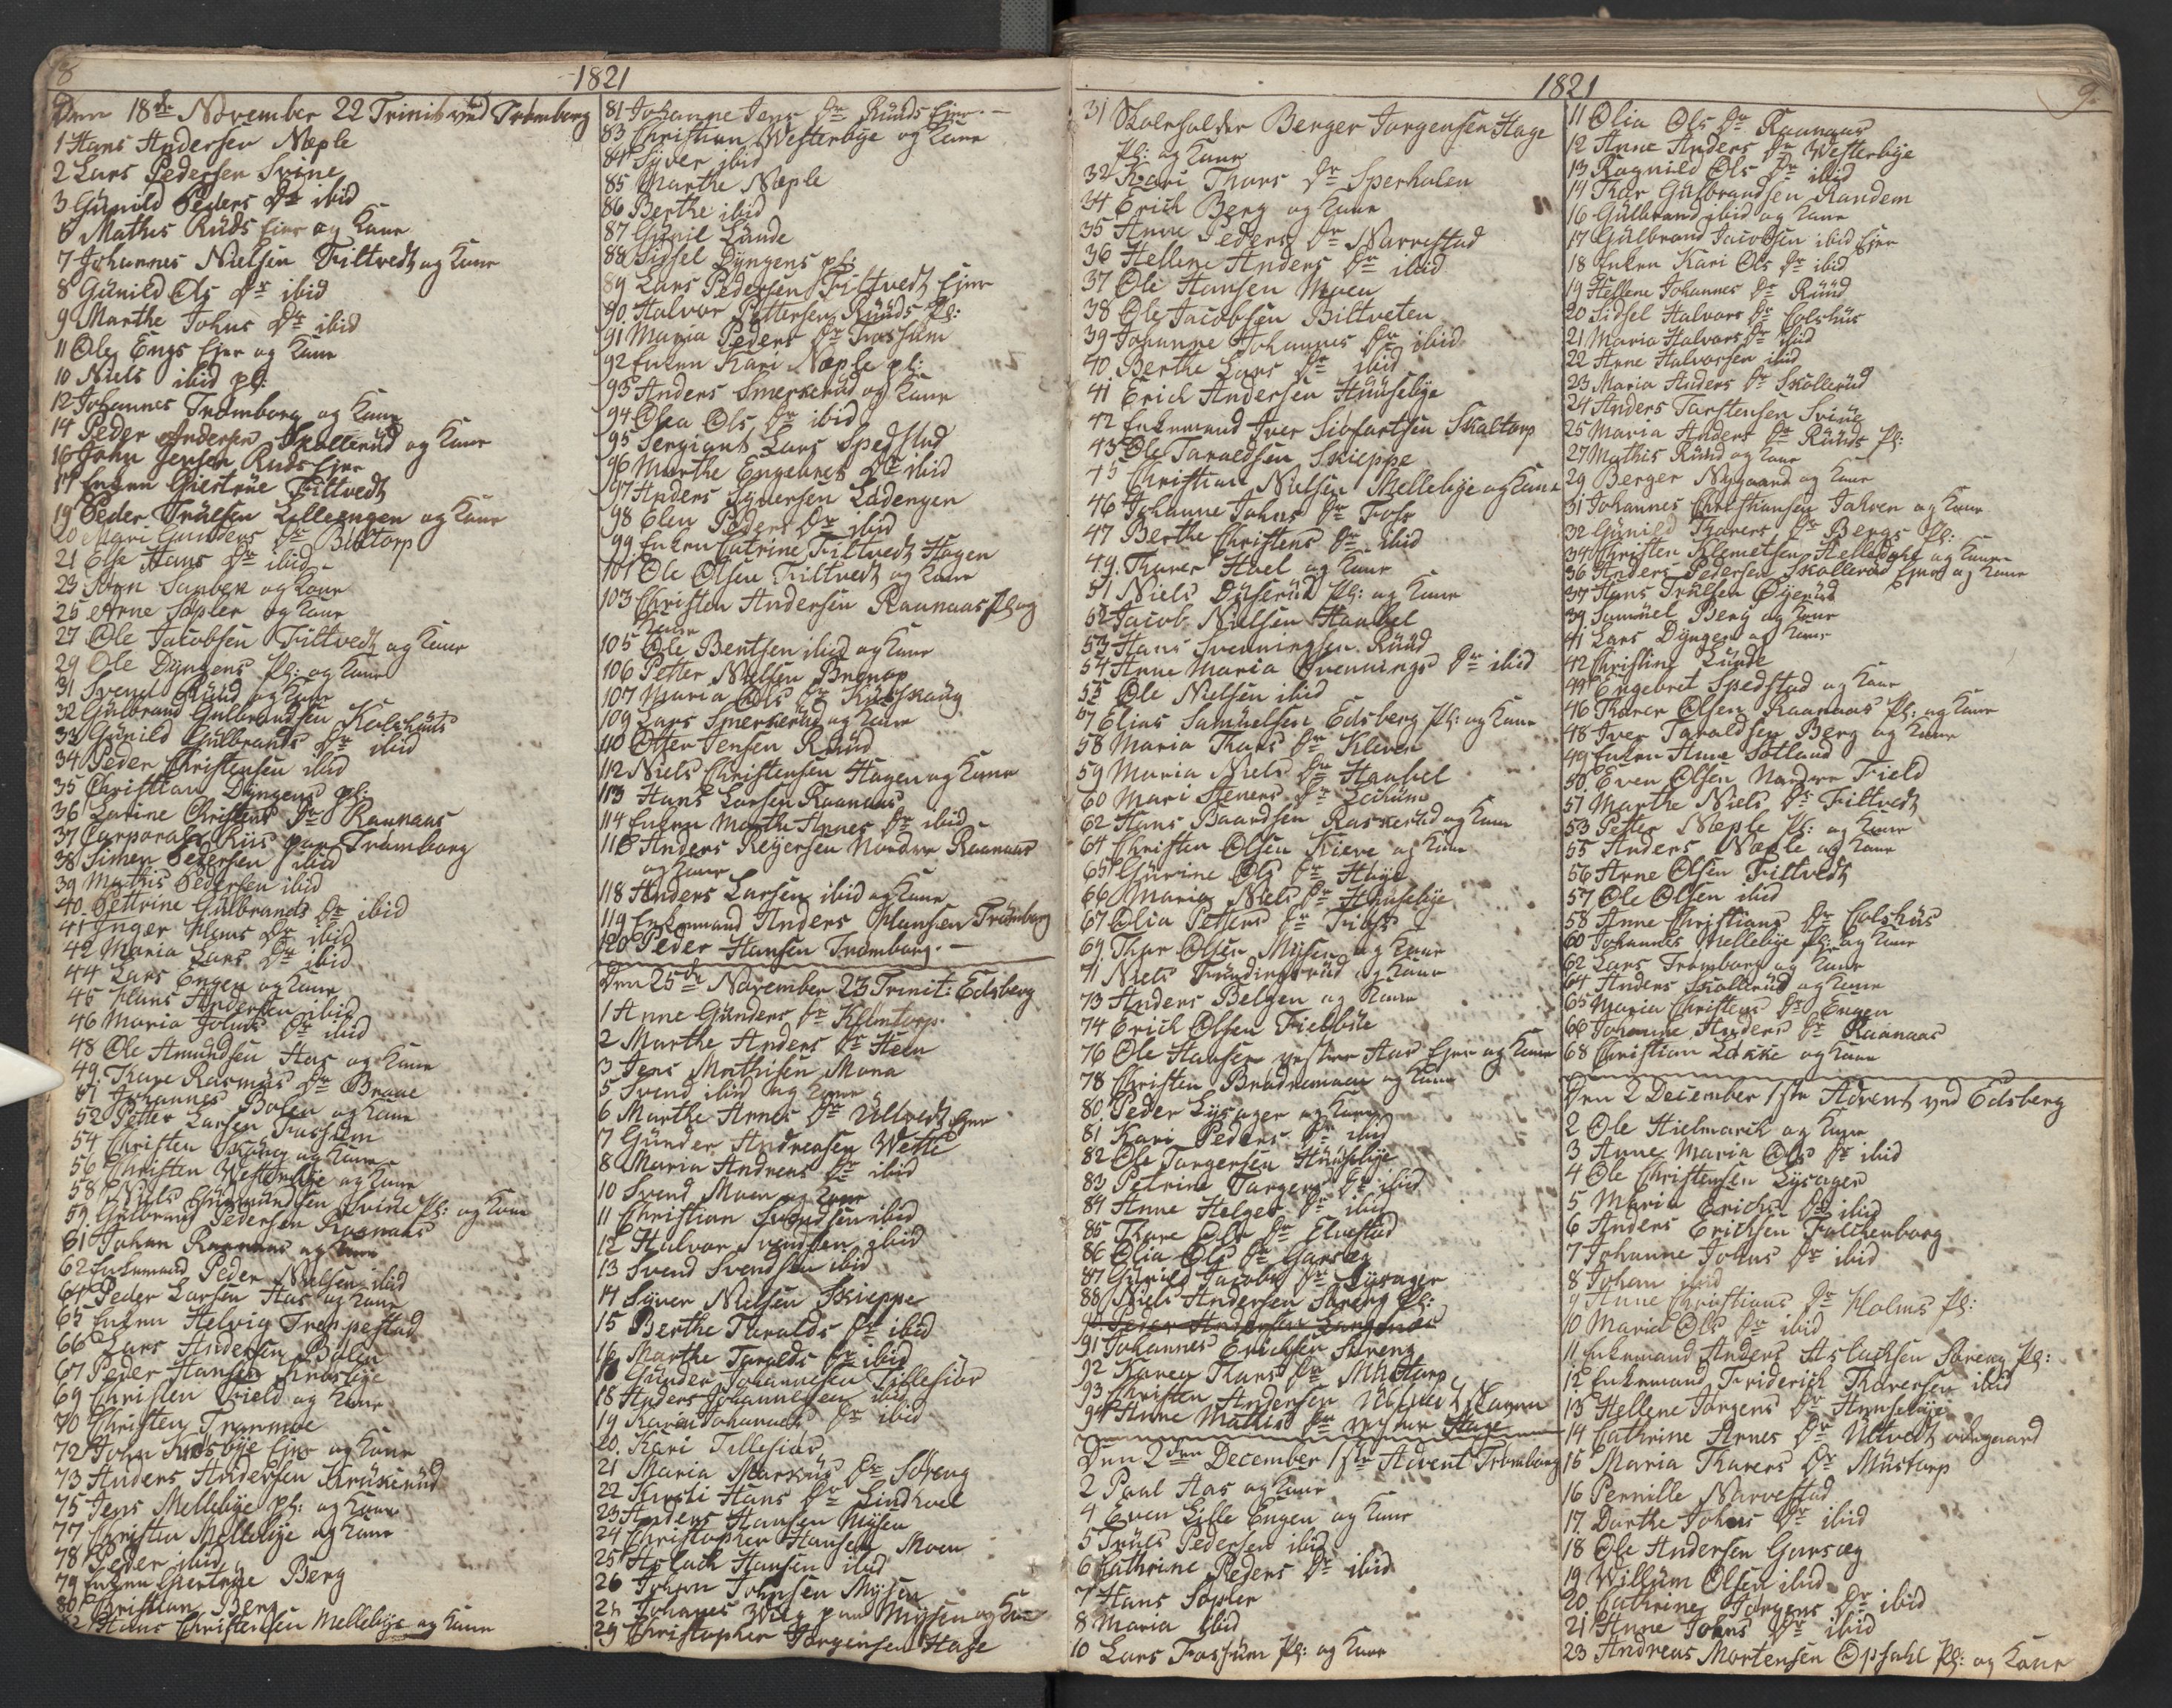 8
1821
Den 18de November 22 Trinit: ved Trømborg
1 Hans Andersen Næple
2 Lars Pedersen Svine
3 Gunild Peders Dr ibid
6 Mathis Ruds Ejer og Kone
7 Johannes Nielsen Filtvedt og Kone
8 Gunild Ols Dr ibid
9 Marthe Johns Dr ibid
11 Ole Engs Ejer og Kone
10 Niels ibid pl:
12 Johannes Trømborg og Kone
14 Peder Andersen Skollerud og Kone
16 John Jensen Ruds Ejer
17 Enken Giertrue Filtvedt
19 Peder Trulsen Lilleengen og Kone
20 Mari Gunders Dr Biltorp
21 Else Hans Dr ibid
23 Sauben og Kone
25 Arne Sopler og Kone
27 Ole Jacobsen Filtvedt og Kone
29 Ole Dyngens Pl: og Kone
31 Svend Ruud og Kone
32 Gulbrand Gulbrandsen Kolshuus
33 Gunild Gulbrands Dr ibid
34 Peder Christensen ibid
35 Christian Dyngens pl:
36 Larine Christens Dr Raanaas
37 Corporal Riis paa Trømborg
38 Simen Pedersen ibid
39 Mathis Pedersen ibid
40 Pettrine Gulbrands Dr ibid
41 Inger Hans Dr ibid
42 Maria Lars Dr ibid
44 Lars Engen og Kone
45 Hans Andersen ibid
46 Maria Johns Dr ibid
48 Ole Amundsen Aas og Kone
49 Kare Rasmus Dr Braae
51 Johannes Bolen og Kone
52 Petter Larsen Fossum
54 Christen Skoug og Kone
56 Christen Westerbye og Kone
58 Niels Gudmundsen Svine Pl: og Kone
59 Gulbrand Pedersen Raanaas
61 Johan Raanaas og Kone
62 Enkemand Peder Nielsen ibid
64 Peder Larsen Aas og Kone
65 Enken Helvig Trompestad
66 Lars Andersen Bølen
67 Peder Hansen Krosbye
69 Christen Field og Kone
70 Christen Trømmoe
72 John Krosbye Ejer og Kone
73 Anders Andersen Krukerud
75 Jens Mellebye Pl: og Kone
77 Christen Mellebye og Kone
78 Peder ibid
79 Enken Giertrue Berg
80 Christian Berg
82 Hans Christensen Mellebye og Kone
81 Johanne Jens Dr Ruuds Ejer. -
83 Christian Westerbye og Kone
84 Syver ibid
85 Marthe Næple
86 Berthe ibid
87 Gunil Lunde
88 Sidsel Dyngens pl:
89 Lars Pedersen Filtvedt Ejer
90 Halvor Pettersen Ruuds Pl:
91 Maria Peders Dr Fossum
92 Enken Kari Næple pl:
93 Anders Smerkerud og Kone
94 Olea Ols Dr ibid
95 Sergiant Lars Spedstad
96 Marthe Engebrets Dr ibid
97 Anders Syversen Ladengen
98 Elen Peders Dr ibid
99 Enken Catrine Filtvedt Hagen
101 Ole Olsen Filtvedt og Kone
103 Christen Andersen Raanaas Pl: og
Kone
105 Ole Bentsen ibid og Kone
106 Petter Nielsen
107 Maria Ols Dr
109 Lars Smerkerud og Kone
110 Otter Jensen Ruud
112 Niels Christensen Hagen og Kone
113 Hans Larsen Raanaas
114 Enken Marthe Arnes Dr ibid
116 Anders Reijersen Nordre Raanaas
og Kone
118 Anders Larsen ibid og Kone
119 Enkemand Anders Hansen Trømborg
120 Peder Hansen Trømborg. -
Den 25de November 23 Trinit: Edsberg
1 Anne Gunders Dr
2 Marthe Anders Dr Heen
3 Jens Mathisen Mona
5 Svend ibid og Kone
6 Marthe Arnes Dr Ultvedt Ejer
7 Gunder Andreasen Wette
8 Maria Andreas Dr ibid
10 Svend Moen og Kone
11 Christian Svendsen ibid
12 Halvor Svendsen ibid
13 Svend Svendsen ibid
14 Syver Nielsen Skieppe
15 Berthe Taralds Dr ibid
16 Marthe Taralds Dr ibid
18 Gunder Johannesen Tillefior
18 Anders Johannesen ibid
19 Karen Johannes Dr ibid
20 Kari Tillefior
21 Maria Markus Dr Søreng
22 Kirsti Hans Dr Lindhoel
23 Anders Hansen Mysen
24 Christopher Hansen Moen
25 Aslach Hansen ibid
26 Johan Johnsen Mysen
28 Johanes Wiig paa Mysen og Kone
29 Christopher Jørgensen Hage
1821
9
31 Skoleholder Berger Jorgensen Hage
Pl: og Kone
32 Kari Thors Dr Sperhalen
34 Erich Berg og Kone
35 Anne Peders Dr Narvestad
36 Hellene Anders Dr ibid
37 Ole Hansen Moen
38 Ole Jacobsen Biltveten
39 Johanne Johannes Dr ibid
40 Berthe Lars Dr ibid
41 Erich Andersen Huusebye
42 Enkemand Iver Siofartsen Skaltorp
43 Ole Taraldsen Skieppe
45 Christian Nielsen Mellebye og Kone
46 Johanne Johns Dr Foss
47 Berthe Christens Dr ibid
49 Thorer Hoel og Kone
51 Niels Dyserud Pl: og Kone
52 Jacob Nielsen Haabel
53 Hans Svenningsen Ruud
54 Anne Maria Svennings Dr ibid
55 Ole Nielsen ibid
57 Elias Samuelsen Edsberg Pl: og Kone
58 Maria Thors Dr Kleven
59 Maria Niels Dr Haabel
60 Mari Steners Dr Lekum
62 Hans Baardsen Raskerud og Kone
64 Christen Olsen Kieve og Kone
65 Gurine Ols Dr Høye
66 Maria Niels Dr Huusebye
67 Olia Petters Dr
69 Thor Olsen Mysen og Kone
71 Niels Trundingsrud og Kone
73 Anders Belgen og Kone
74 Erich Olsen Fielbøle
76 Ole Hansen vestre Aas Ejer og Kone
78 Christen Brødremoen og Kone
80 Peder Lysager og Kone
81 Kari Peders Dr ibid
82 Ole Torgersen Huusebye
83 Petrine Torgers Dr ibid
84 Anne Helges Dr ibid
85 Thore Ols Dr Elvestad
86 Olia Ols Dr Garseg
87 Gunild Jacobs Dr Lysager
88 Niels Andersen Søreng Pl:
90 Peder Andersen Langenæs
91 Johannes Erichsen Søreng
92 Karen Thors Dr Mustorp
93 Christen Andersen Ultvedt
94 Anne Mathis Dr vestre Hage
Den 2den December 1ste Advent Trømborg
2 Poul Aas og Kone
4 Even Lille Engen og Kone
5 Truls Pedersen ibid
6 Cathrine Peders Dr ibid
7 Hans Sopler
8 Maria ibid
10 Lars Fossum Pl: og Kone
11 Olia Ols Dr Raanaas
12 Anne Anders Dr Westerbye
13 Ragnild Ols Dr ibid
14 Thor Gulbrandsen Randem
16 Gulbrand ibid og Kone
17 Gulbrand Jacobsen ibid Ejer
18 Enken Kari Ols Dr ibid
19 Hellene Johannes Dr Ruud
20 Sidsel Halvors Dr Colshus
21 Maria Halvors Dr ibid
22 Arne Halvorsen ibid
23 Maria Anders Dr Skollerud
24 Anders Torstensen Svine
25 Maria Anders Dr Ruuds Pl:
27 Mathis Ruud og Kone
29 Berger Nygaard og Kone
31 Johannes Christiansen Jahren og Kone
32 Gunild Thorers Dr Bergs Pl:
34 Christen Klemetsen Helledahl og Kone
36 Anders Pedersen Skollerud Ejer og Kone
37 Hans Trulsen Øyerud
39 Samuel Berg og Kone
41 Lars Dyngen og Kone
42 Christine Lunde
44 Engebret Spedstad og Kone
46 Thorer Olsen Raanaas Pl: og Kone
48 Iver Taraldsen Berg og Kone
49 Enken Anne Sotland
50 Even Olsen Nordre Field
51 Marthe Niels Dr Filtvedt
53 Petter Næple Pl: og Kone
55 Anders Næple og Kone
56 Arne Olsen Filtvedt
57 Ole Olsen ibid
58 Anne Christians Dr Colshus
60 Johannes Mellebye Pl: og Kone
62 Lars Trømborg og Kone
64 Anders Skollerud og Kone
65 Maria Christens Dr Engen
66 Johanne Anders Dr Raanaas
68 Christian Løkke og Kone
Den 2 December 1ste Advent ved Edsberg
2 Ole Hielmark og Kone
3 Anne Maria Ols Dr ibid
4 Ole Christensen Lysager
5 Maria Erichs Dr ibid
6 Anders Erichsen Falchenborg
7 Johanne Johns Dr ibid
8 Johan ibid
9 Anne Christians Dr Holms Pl:
10 Maria Ols Dr ibid
11 Enkemand Anders Aslachsen Søreng Pl:
12 Enkemand Friderich Thoresen ibid
13 Hellene Jørgens Dr Huusebye
14 Cathrine Arnes Dr Ultvedt ødegaard
15 Maria Thorers Dr Mustorp
16 Pernille Narvestad
17 Dorthe Johns Dr ibid
18 Ole Andersen Garseg
19 Willum Olsen ibid
20 Cathrine Jørgens Dr ibid
21 Anne Johns Dr ibid
23 Andreas Mortensen Opsahl Pl: og Kone